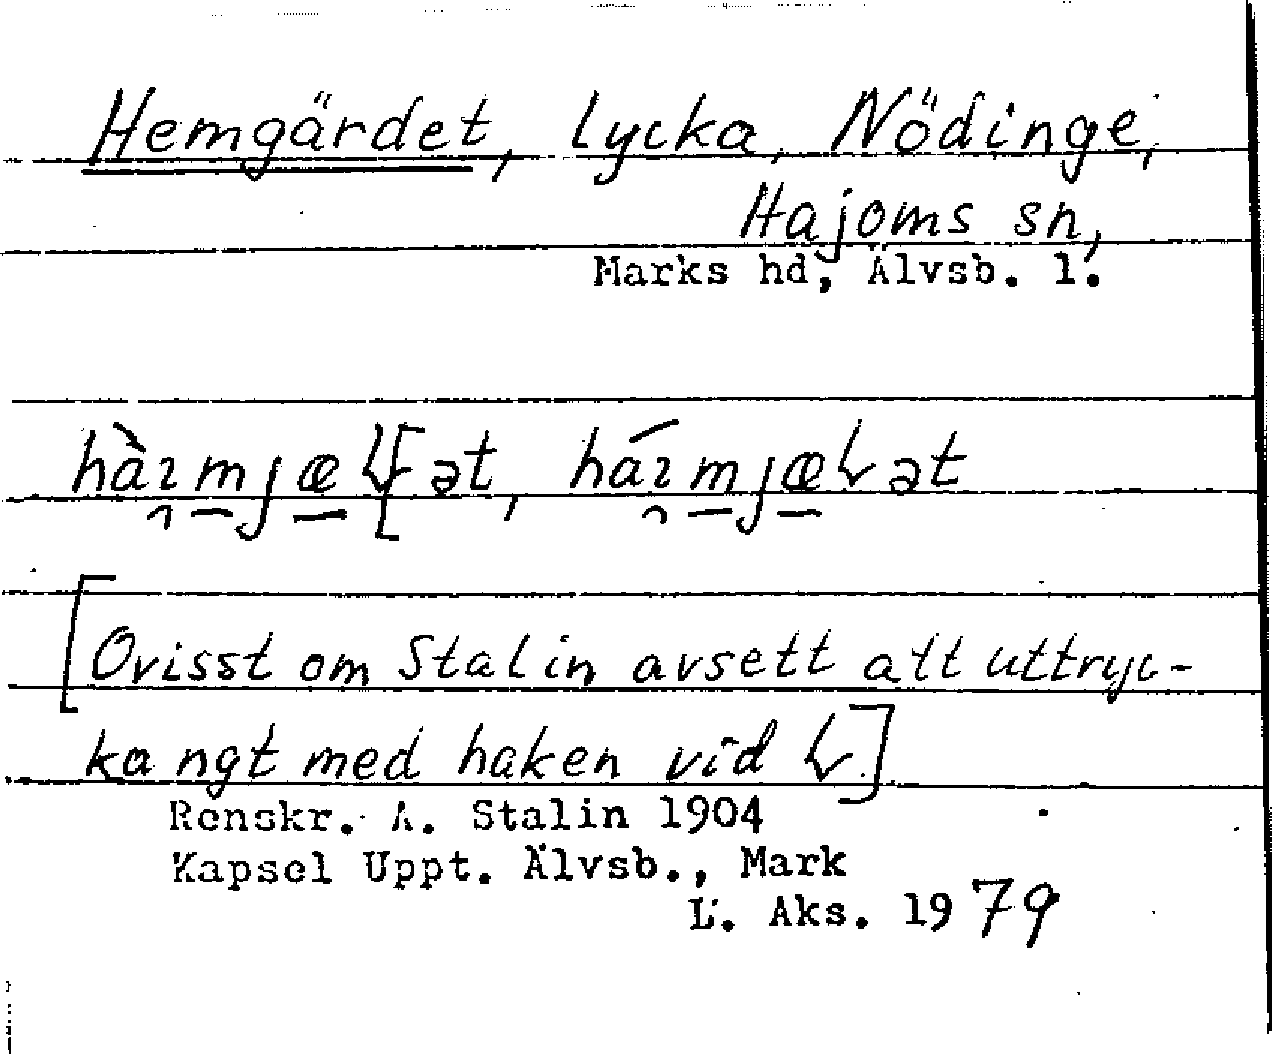 Hemgärdet, lycka, Nödinge,
Hajoms sn,
Marks hd, Älvsb. l.
[Ovisst om Stalin avsett att uttryc-
ka ngt med haken vid
Renskr. A. Stalin 1904
Kapsel Uppt. Älvsb., Mark
L. Aks. 1979